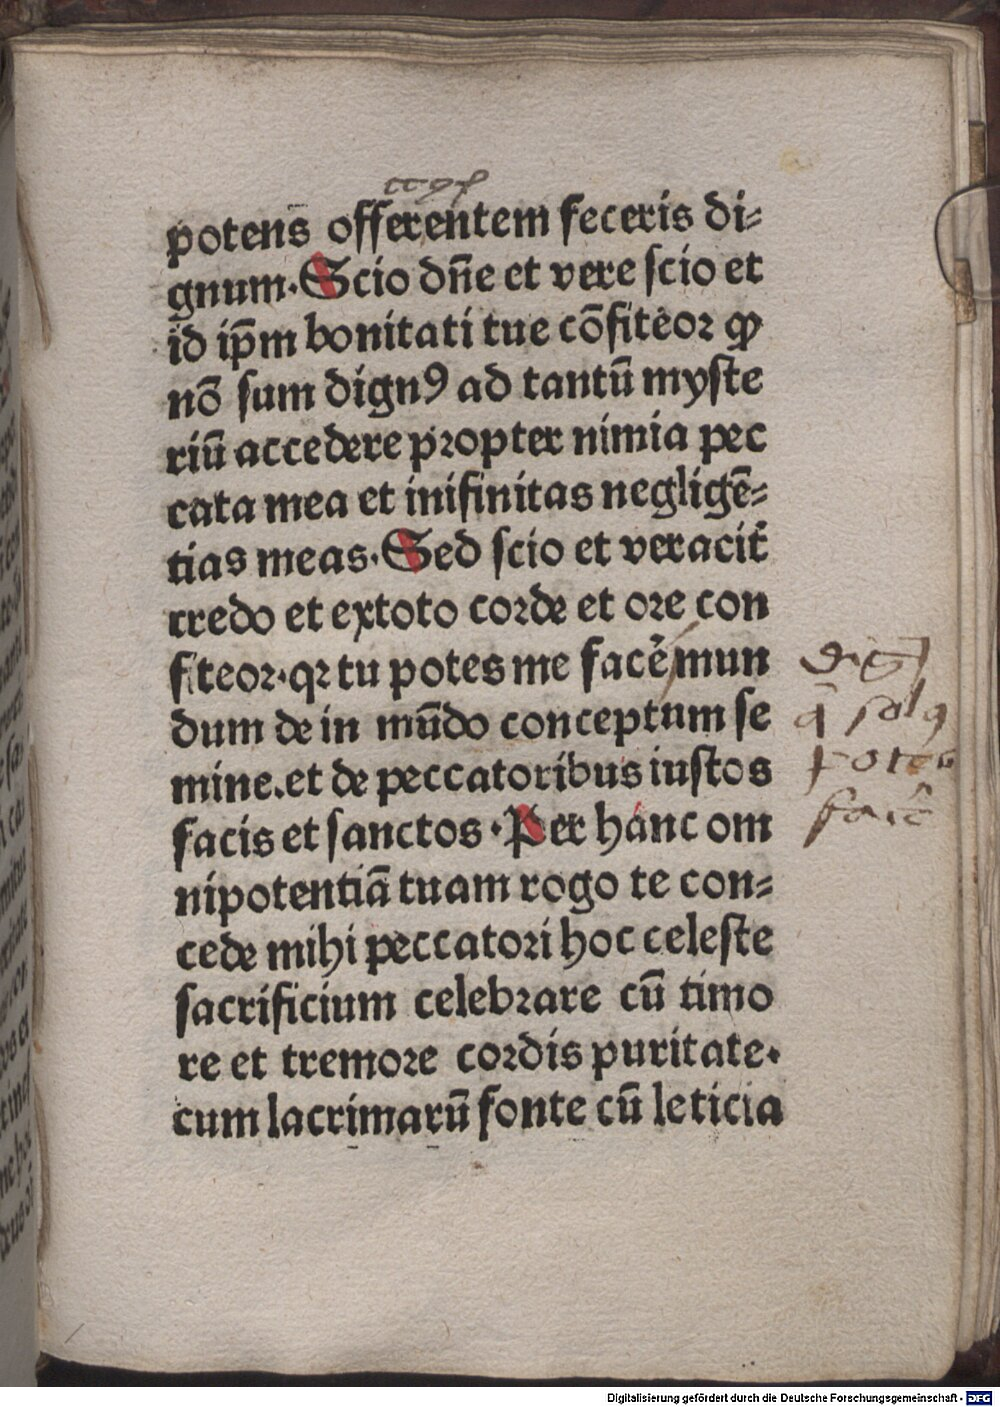 potens offerentem feceris di⸗
gnum. Scio dñe et vere scio et
id ip̄m bonitati tue cōfiteor ꝙ
nō sum dignꝰ ad tantū myste
riū accedere propter nimia pec
cata mea et inifinitas negligē⸗
tias meas. Sed scio et veracit̄
credo et extoto corde et ore con
fiteor. qꝛ tu potes me facē mun
dum de in mūdo conceptum se
mine. et de peccatoribus iustos
facis et sanctos. Per hanc om
nipotentiā tuam rogo te con⸗
cede mihi peccatori hoc celeste
sacrificium celebrare cū timo
re et tremore cordis puritate.
cum lacrimarū fonte cū leticia
Digitalisierung gefördert durch die Deutsche Forschungsgemeinschaft - DFG